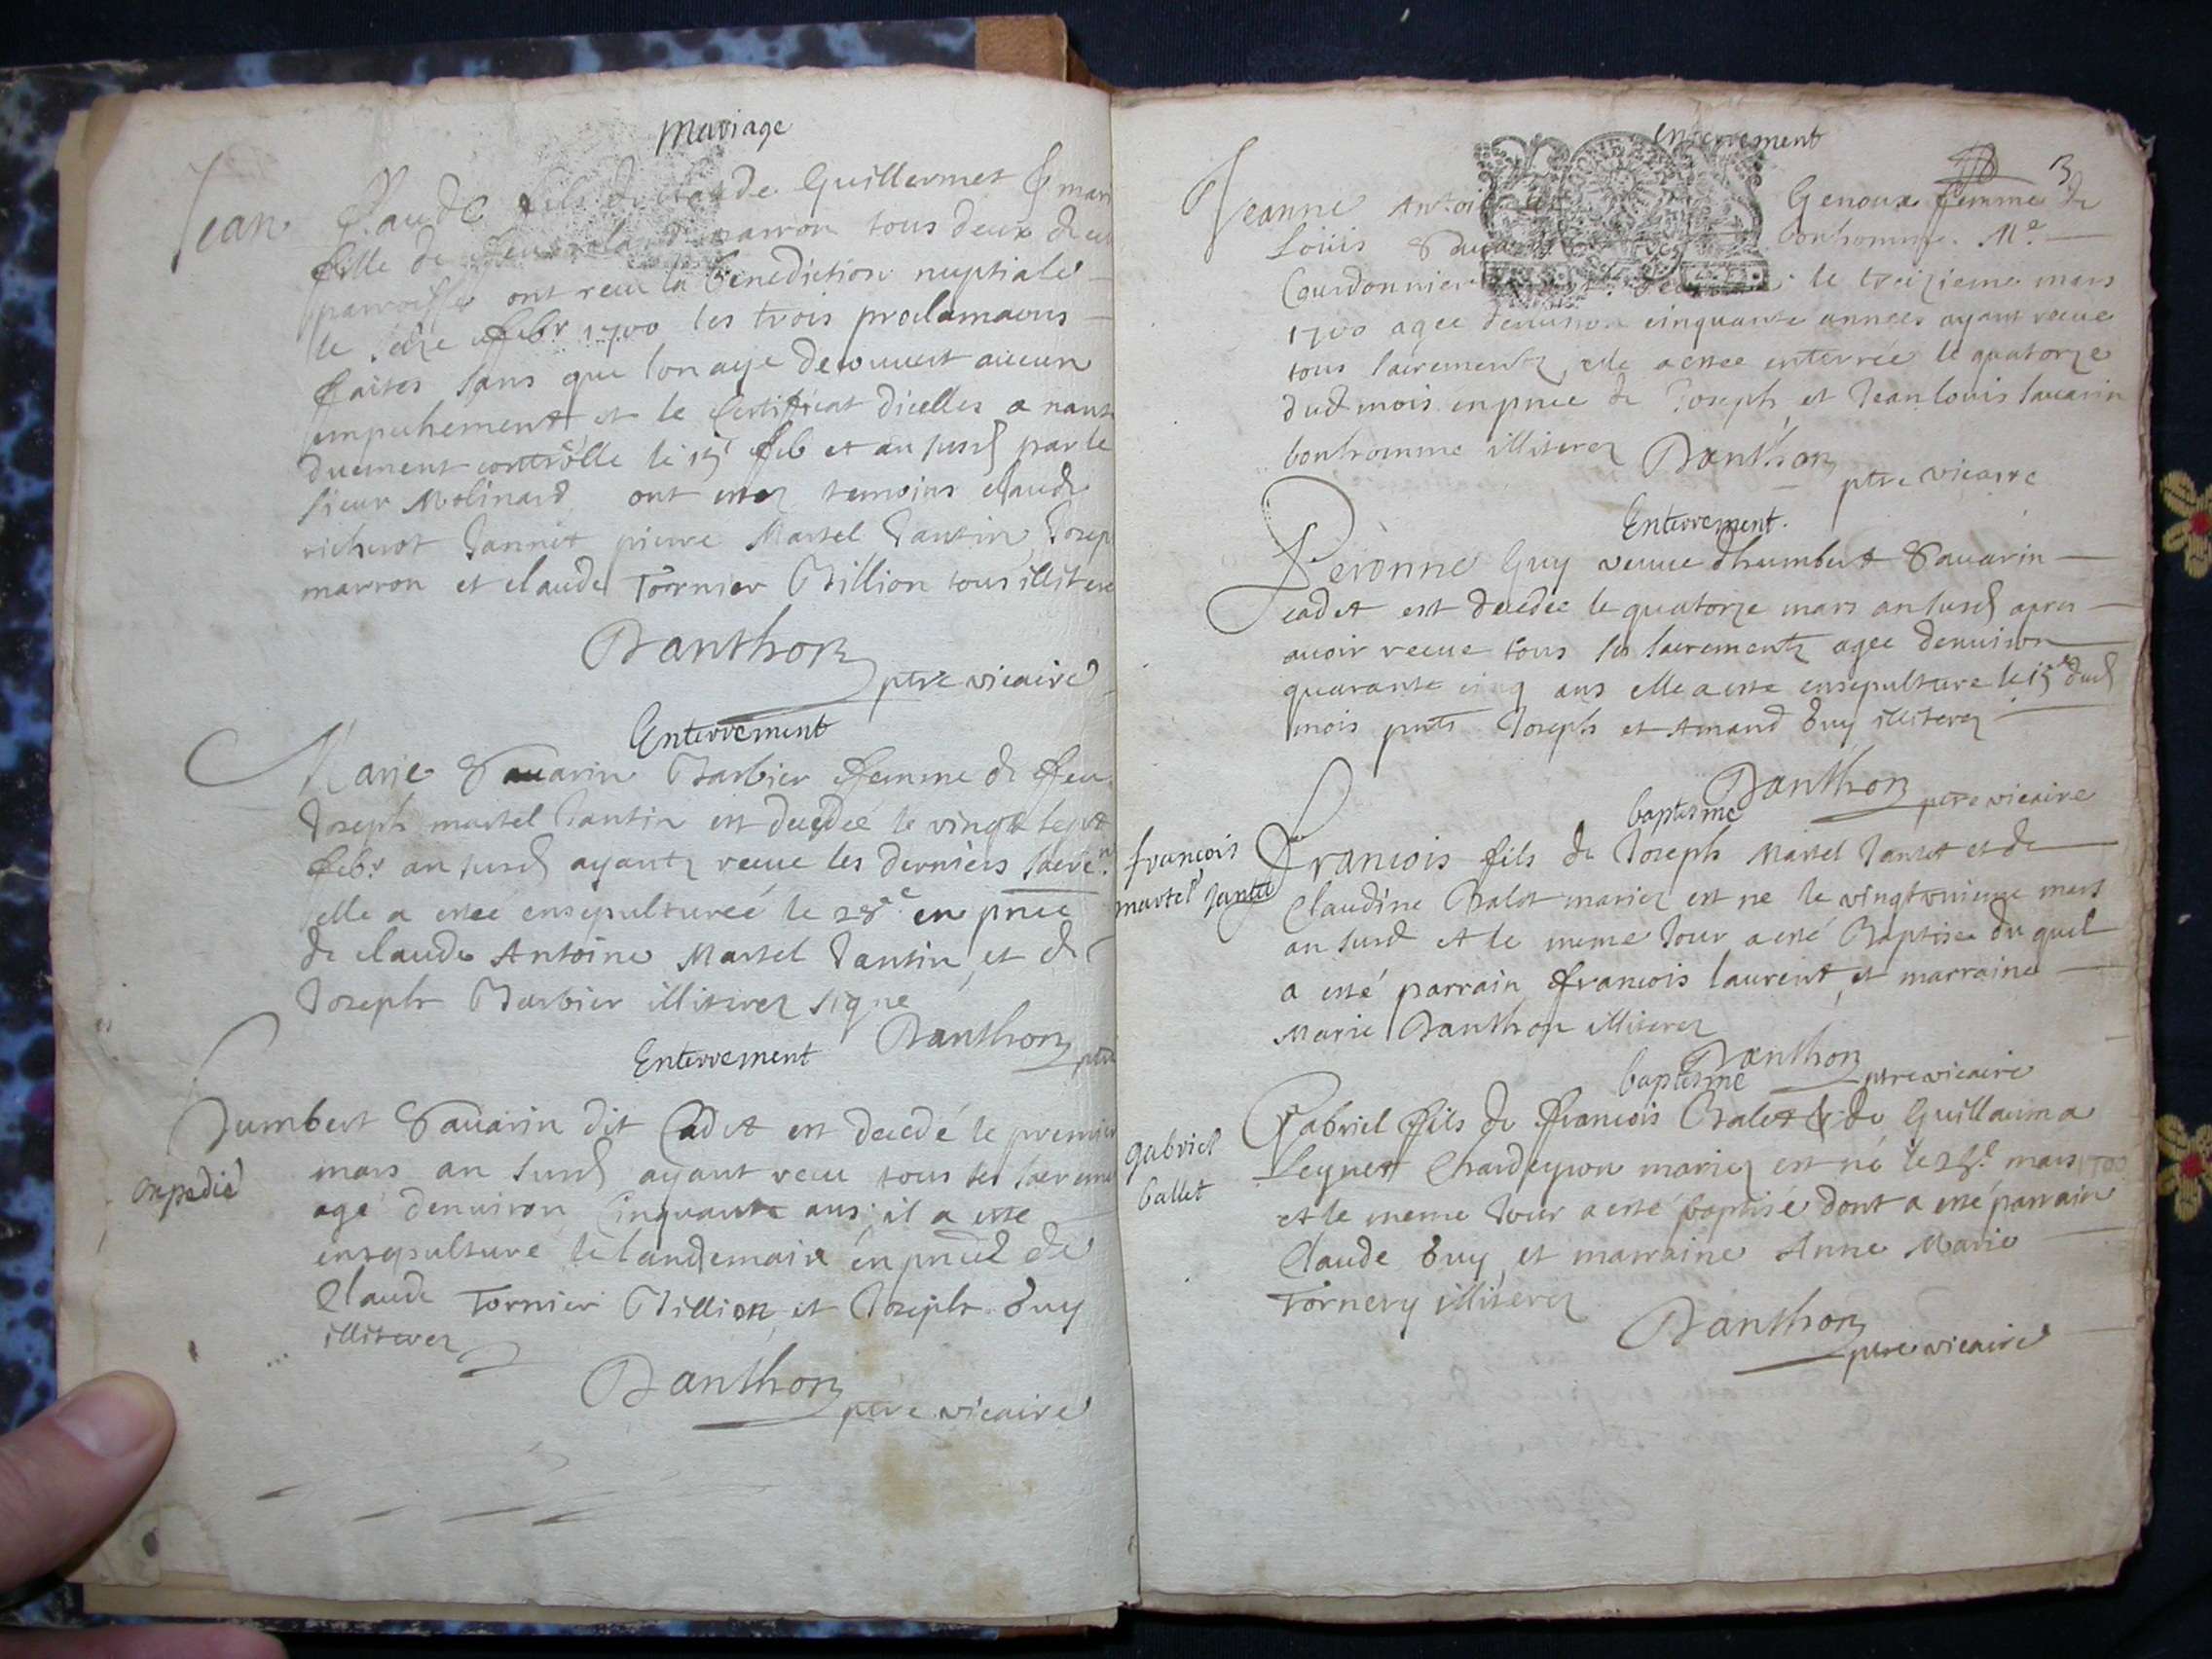 Mariage
Jean Claude fils de Claude Guillermet & mari
fille de feu marron tous deux de
parroisse ont receu la benediction nuptiale
le seize febr 1700 les trois proclamaõns
faites sans que lon aye decouuert aucun
empechement et le Certificat dicelles a nant
duement controlle le 15 feb et an susd par le
sieur Molinard ont estez temoins claude
richerot Jannet pierre Martel Jantin Josep
marron et claude Tornier Billion tous illitere
Danthon
ptre vicaire
Enterrement
Marie Sauarin Barbier femme de feu
Joseph martel Jantin est decedée le vingt sept
febr. an susd ayant receue les derniers sacre.
elle a estee ensepulturée le 28e en pnce
de claude Antoine Martel Jantin et de
Joseph Barbier illiterez signe
Danthon ptre
Enterrement
Humbert Sauarin dit Cadet est decedé le premier
expedié
mars an susd ayant receu tous les sacreme
agé denuiron Cinquante ans il a este
ensepulturé le landemain en pnce de
Claude Tornier Billion et Joseph Guy
illiterez
Danthon
ptre vicaire
enterrement
3
Jeanne Antoi Genoux femme de
Loüis Saua bonhomme Me
Courdonnier le treizieme mars
1700 agee denuiron cinquante annees ayant receue
tous sacrementz, elle a estee enterrée le quatorze
dud mois en pnce de Joseph et Jean louis sauarin
bonhomme illiterez Danthon
ptre vicaire
Enterrement.
Peronne Guy veuue dhumbert Sauarin
cadet est decedée le quatorze mars an susd apres
auoir receue tous les sacrementz agee denuiron
quarante cinq ans elle a este ensepulture le 15e dud
mois pnts Joseph et Amand Guy illiterez
Danthon
ptre vicaire
baptesme
francois
martel Jantet
Francois fils de Joseph Martel Jantet et de
Claudine Balet mariez est ne le vingt mars
an susd et le meme Jour a esté Baptise du quel
a esté parrain francois laurent, et marraine
Marie Danthon illiterez
Danthon
ptre vicaire
baptesme
gabriel
ballet
Gabriel fils de francois Balet & de Guillauma
Seguet Chardeyron mariez est né le 28e mars 1700
et le meme Jour a esté baptisé dont a esté parrain
Claude Guy et marraine Anne Marie
Tornery illiterez
Danthon
ptre vicaire